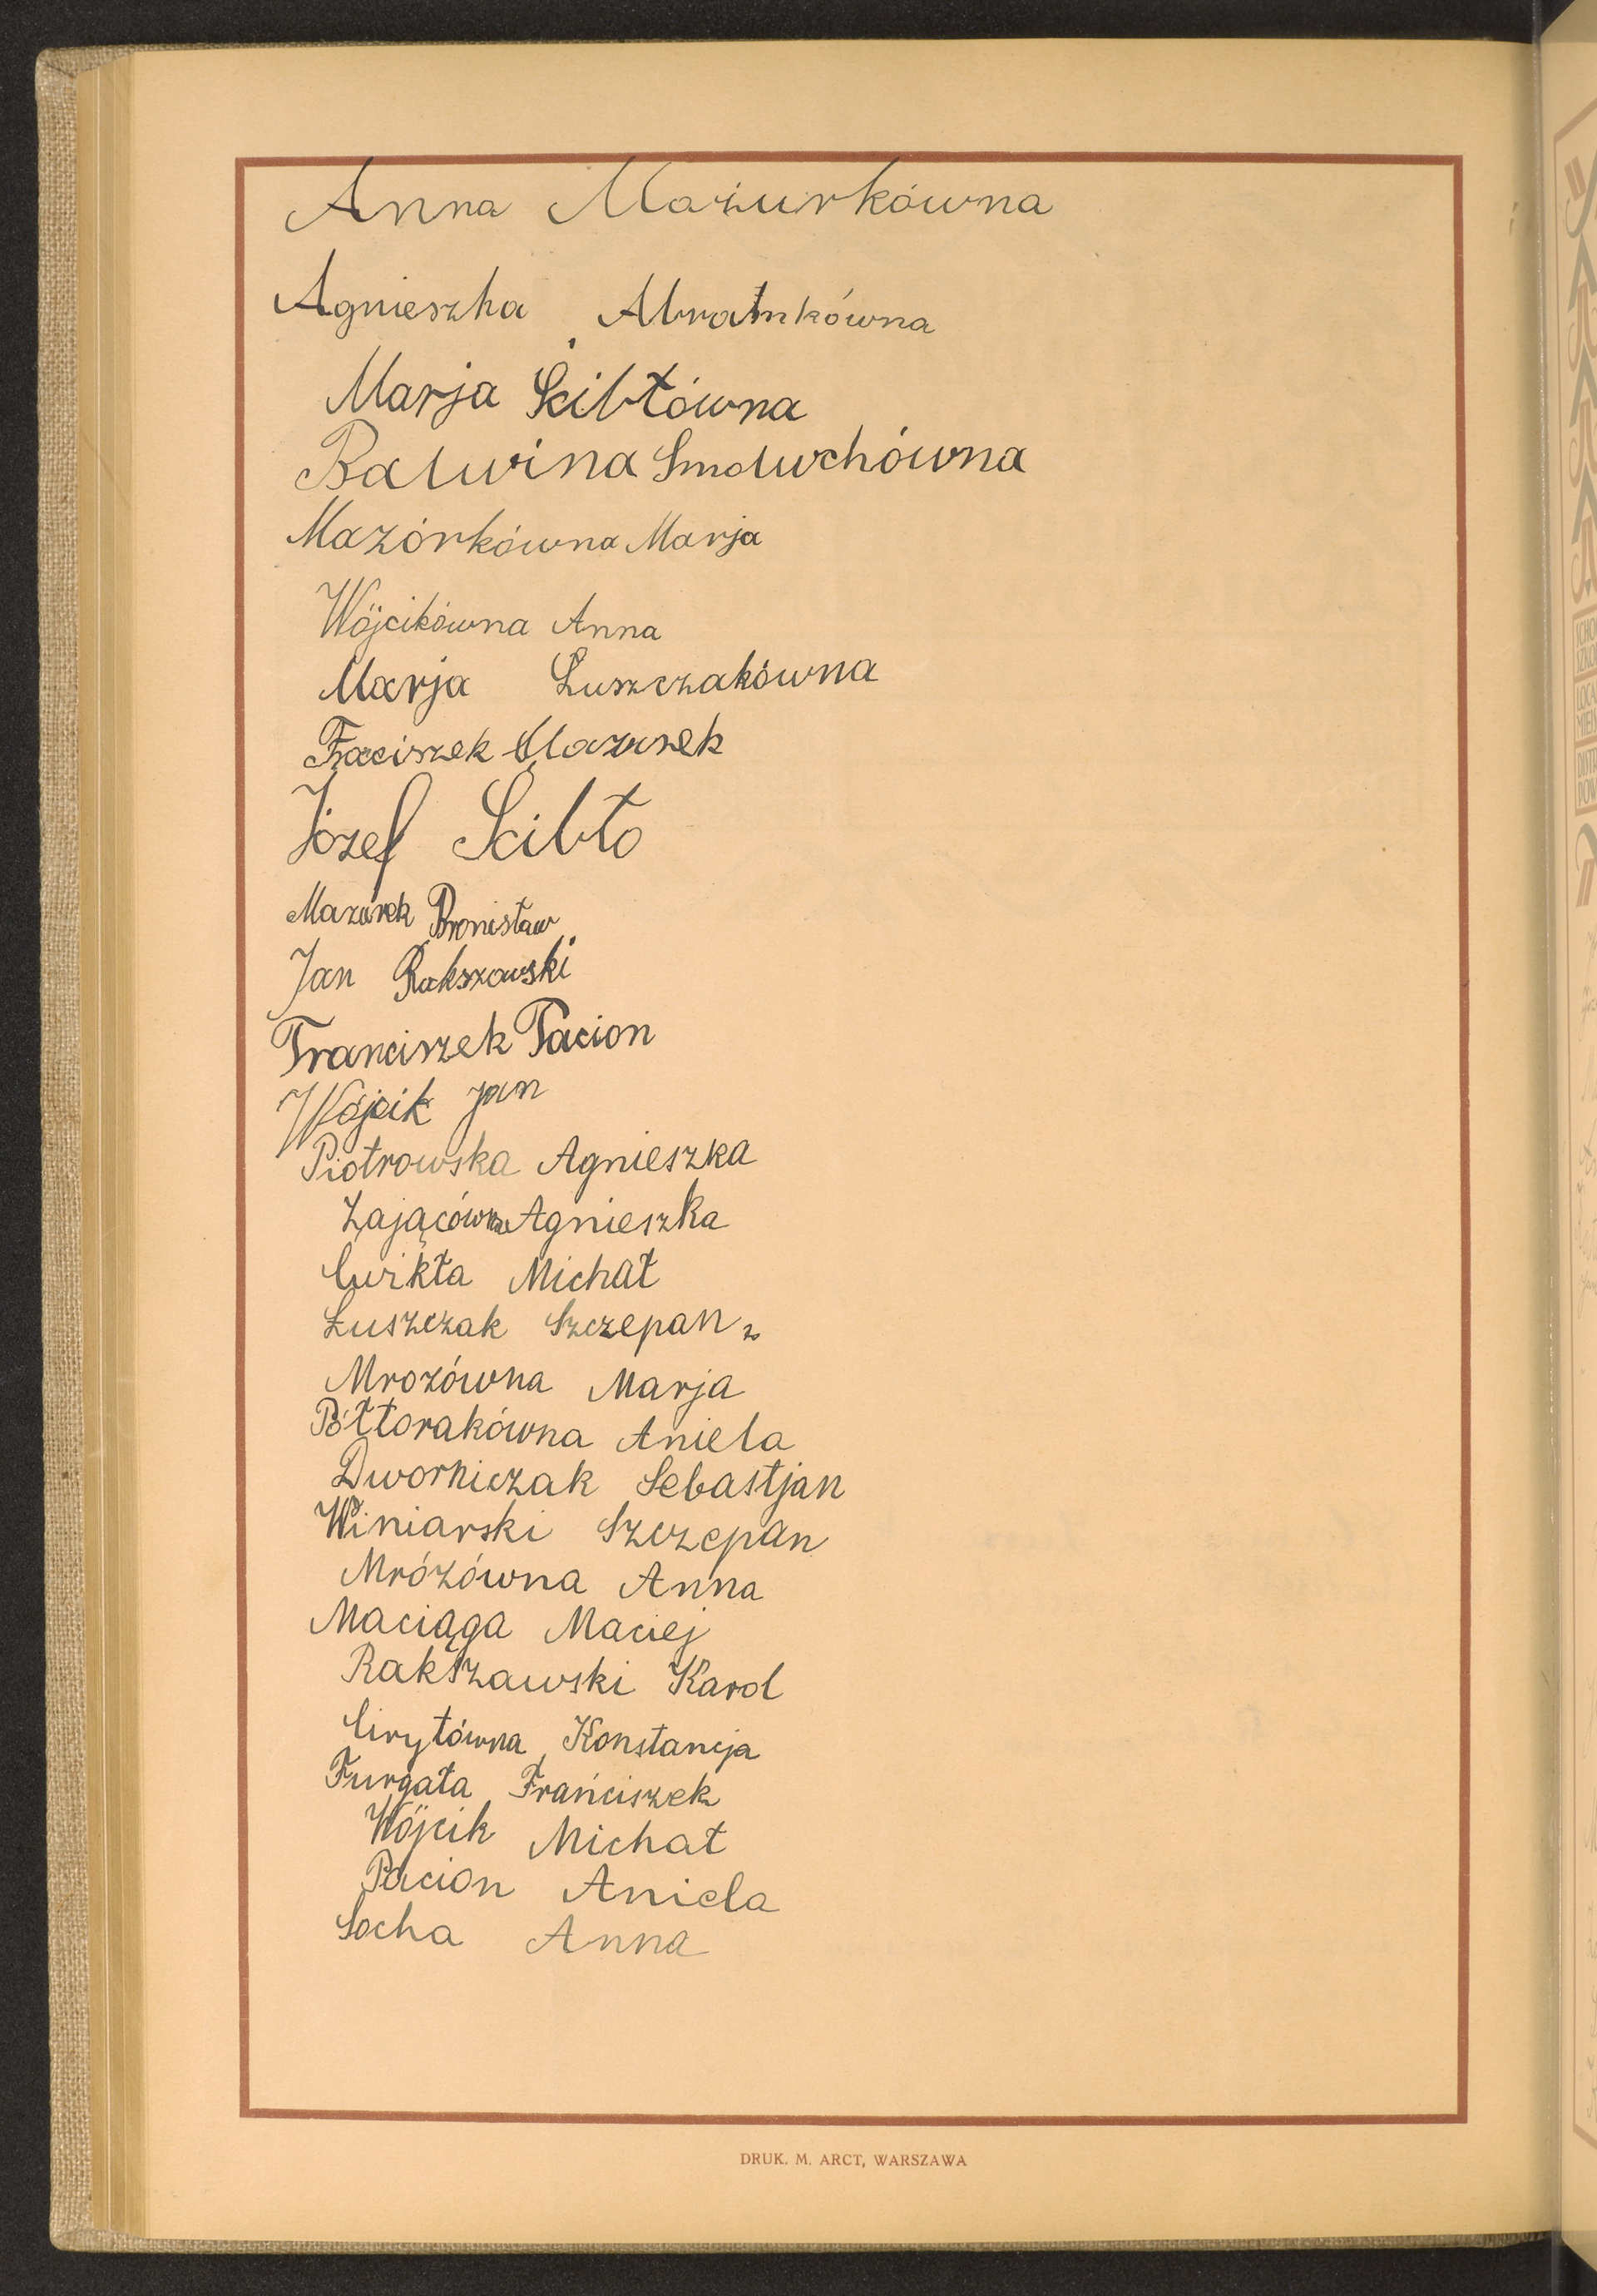 Anna Mazurkówna
Agnieszka Abramkówna
Marja Ścibłówna
Balwina Smoluchówna
Mazórkówna Marja
Wójcikówna Anna
Marja Łuszczakówna
Fraciszek Mazurek
Józef Ścibło
Mazurek Bronisław
Jan Rakszawski
Franciszek Pacion
Wójcik Jan
Piotrowska Agnieszka
Zającówna Agnieszka
Ćwikła Michał
Łuszczak Szczepan
Mrozówna Marja
Półtorakówna Aniela
Dworniczak Sebastjan
Winiarski Szczepan
Mrózówna Anna
Maciąga Maciej
Rakszawski Karol
Cirytówna Konstancja
Furgała Franciszek
Wójcik Michał
Pacion Aniela
Socha Anna
DRUK. M. ARCT, WARSZAWA